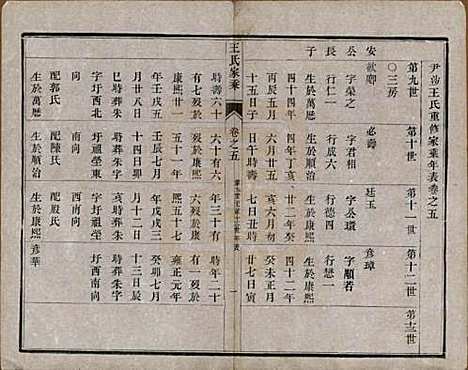 尹沙王氏重修家乘年表卷之五
第九世 第十世 第十一世 第十二世 第十三世
〇三房
安 必壽 廷玉 彥璋
公字榮之 字君相 字公環 字順若
子 行長一 行成六 行德四 行憲一
生於萬曆 生於順治 生於康熙 生於康熙
四十四年 四年丁亥 廿二年 四十二年
丙辰五月 亥六月初 癸未正月
十五日子 七日丑時 廿七日寅
時壽六十 六十有六 時年二十
有七歿於 三歿於康 六歿於康 有一歿於
康熙廿一 熙五十一年 熙五十七 雍正元年
年壬戌十 壬辰七月 年戊戌三 癸卯七月
月廿八日 十四日卯 月十二日 十三日辰
巳時葬朱 時葬朱字 亥時葬朱 時葬朱字
字圩西北 圩祖塋東 字圩祖塋 圩西南向
向 西南向
配郭氏 配陳氏 配殷氏
生於萬曆 生於順治 生於康熙 彥華
王氏家乘
卷之五
一